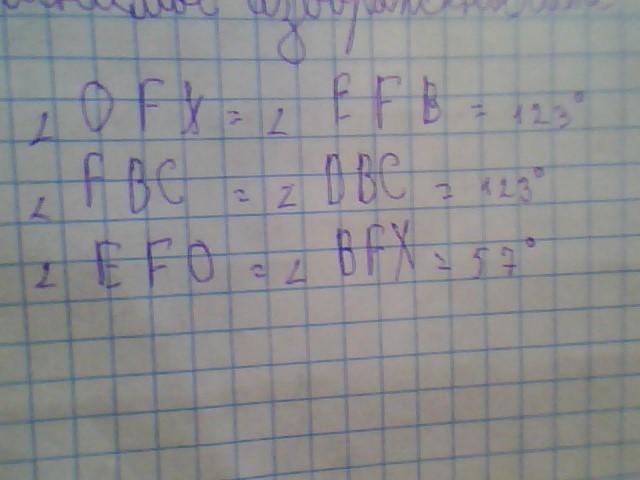 ∠ OFX = ∠ EFB = 123°
∠ FBC = ∠ DBC = 123°
∠ EFO = ∠ BFX = 57°